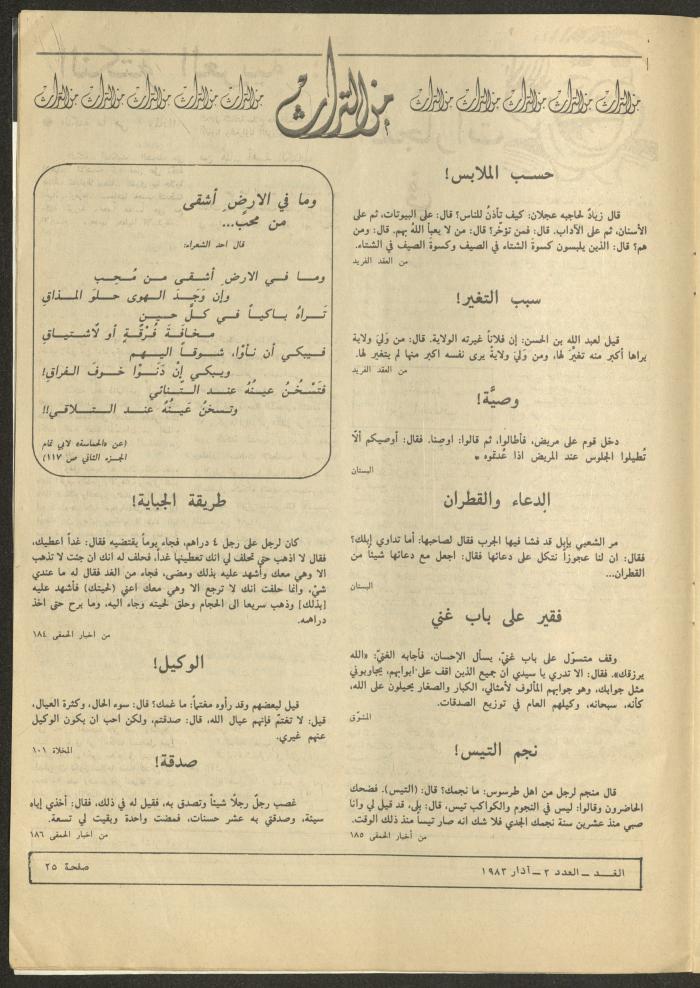 من التراث من التراث من التراث من التراث من التراث
من التراث
من التراث من التراث من التراث من التراث من التراث
حسب الملابس!
قال زيادٌ لحاجبه عجلان: كيف تأذنُ للناس؟ قال: على البيوتات، ثم على
الأسنان، ثم على الآداب. قال: فمن تؤخّر؟ قال: من لا يعبأ اللهُ بهم. قال: ومن
هم؟ قال: الذين يلبسون كسوة الشتاء في الصيف وكسوة الصيف في الشتاء.
من العقد الفريد
سبب التغير!
قيل لعبد الله بن الحسن: إن فلاناً غيرته الولاية. قال: من وَلِيَ ولاية
يراها أكبر منه تغيَّر لها، ومن وَلِيَ ولايةً يرى نفسه اكبر منها لم يتغير لها.
من العقد الفريد
وصيَّة!
دخل قوم على مريض، فأطالوا، ثم قالوا: اوصِنا. فقال: أوصيكم ألّا
تُطيلوا الجلوس عند المريض اذا عُدتموه •
البستان
الدعاء والقطران
مر الشعبي بإبل قد فشا فيها الجرب فقال لصاحبها: أما تداوي إبلك؟
فقال: ان لنا عجوزاً نتكل على دعائها فقال: اجعل مع دعائها شيئاً من
القطران...
البستان
فقير على باب غني
وقف متسوّل على باب غنيّ، يسأل الإحسان، فأجابه الغنيّ: «الله
يرزقك». فقال: الا تدري يا سيدي ان جميع الذين اقف على ابوابهم، يجاوبوني
مثل جوابك، وهو جوابهم المألوف لأمثالي، الكبار والصغار يحيلون على الله،
كأنه، سبحانه، وكيلهم العام في توزيع الصدقات.
المشوّق
نجم التيس!
قال منجم لرجل من اهل طرسوس: ما نجمك؟ قال: (التيس). فضحك
الحاضرون وقالوا: ليس في النجوم والكواكب تيس، قال: بلى، قد قيل لي وانا
صبي منذ عشرين سنة نجمك الجدي فلا شك انه صار تيساً منذ ذلك الوقت.
من أخبار الحمقى ١٨٥
وما في الارضِ أشقى
من محبّ...
قال احد الشعراء:
وما في الارض أشقى من مُحِب
وإن وَجَدَ الهوى حلوَ المذاقِ
تَراهُ باكياً في كلِّ حينٍ
مخافَةَ فُرقةٍ أو لاشتياقِ
فيبكي أن نأوْا، شوقاً اليهم
ويبكي إنْ دَنَوْا خوفَ الفراقِ!
فتَسْخُنُ عينُهُ عند التَّنائي
وتسخنُ عَينُهُ عند التلاقي!!
(عن «الحماسة» لابي تمام
الجزء الثاني ص ١١٧)
طريقة الجباية!
كان لرجل على رجل ٤ دراهم، فجاء يوماً يقتضيه فقال: غداً اعطيك،
فقال لا اذهب حتى تحلف لي انك تعطينها غداً، فحلف له انك ان جئت لا تذهب
الا وهي معك وأشهد عليه بذلك ومضى، فجاء من الغد فقال له ما عندي
شيْ، وانما حلفت انك لا ترجع الا وهي معك اعني (لحيتك) فأشهد عليه
[بذلك] وذهب سريعا الى الحجام وحلق لحيته وجاء اليه، وما برح حتى اخذ
دراهمه.
من اخبار الحمقى ١٨٤
الوكيل!
قيل لبعضهم وقد رأوه مغتماً: ما غمك؟ قال: سوء الحال، وكثرة العيال،
قيل: لا تغتمّ فإنهم عيال الله، قال: صدقتم، ولكن احب ان يكون الوكيل
عنهم غيري.
المخلاة ١٠١
صدقة!
غصب رجلٌ رجلًا شيئاً وتصدق به، فقيل له في ذلك، فقال: أخذي إياه
سيئة، وصدقتي به عشر حسنات، فمضت واحدة وبقيت لي تسعة.
من اخبار الحمقى ١٨٦
الغد – العدد ٢ – آذار ١٩٨٣
صفحة ٢٥